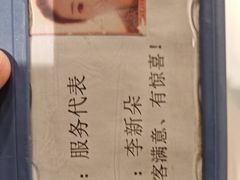 ：服务代表
：李新朵
客满意、有惊喜！